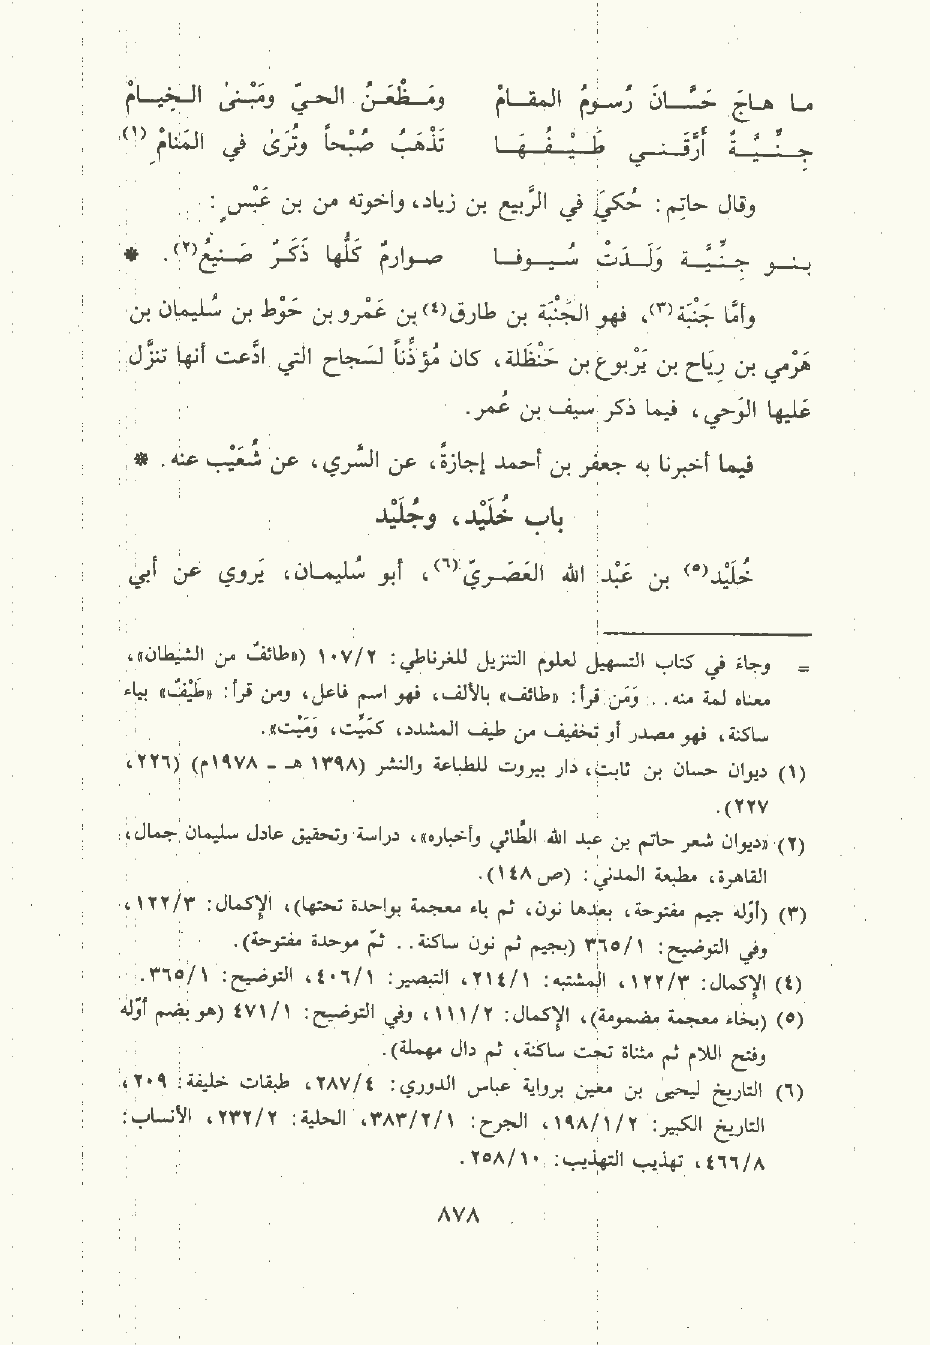 مـا هـاجَ حَسَّـانَ رُسـومُ المقـامْ ومَـظْعَـنُ الحـيِّ ومَبْـنىٰ الخِيـامْ
جِـنِّـيَّـةٌ أَرَّقَـنـي طَـيْـفُـهَـا تَذْهَبُ صُبْحاً وتُرَىٰ في المَنامْ(١)
وقال حاتِم: حُكيَ في الرَّبيع بن زياد، واخوته من بن عَبْسٍ:
بـنـو جِـنِّـيَّـة وَلَـدَتْ سُـيـوفـا صـوارمٌ كلُّها ذَكَـرٌ صَـنيعُ(٢). *
وأمَّا جَنْبَة(٣)، فهو الجَنْبَة بن طارق(٤) بن عَمْرو بن حَوْط بن سُليمان بن
هَرْمي بن رِيَاح بن يَرْبوع بن حَنْظَلة، كان مُؤذِّناً لسَجاح التي ادَّعت أنها تنزَّل
عَليها الوَحي، فيما ذكر سيف بن عُمر.
فيما أخبرنا به جعفر بن أحمد إجازةً، عن السَّري، عن شُعَيْب عنه. *
باب خُلَيْد، وجُلَيْد
خُلَيْد(٥) بن عَبْد الله العَصَـريّ(٦)، أبو سُليمـان، يَروي عن أبي
= وجاءَ في كتاب التسهيل لعلوم التنزيل للغرناطي: ١٠٧/٢ («طائفٌ من الشيطان»،
معناه لمة منه. . وَمَن قرأ: «طائف» بالألف، فهو اسم فاعل، ومن قرأ: «طَيْفٌ» بياء
ساكنة، فهو مصدر أو تخفيف من طيف المشدد، كَمَيِّت، وَمَيْت».
(١) ديوان حسان بن ثابت، دار بيروت للطباعة والنشر (١٣٩٨ هـ - ١٩٧٨م) (٢٢٦،
٢٢٧).
(٢) «ديوان شعر حاتم بن عبد الله الطَّائي وأخباره»، دراسة وتحقيق عادل سليمان جمال،
القاهرة، مطبعة المدني: (ص ١٤٨).
(٣) (أوّله جيم مفتوحة، بعدها نون، ثم باء معجمة بواحدة تحتها)، الإكمال: ١٢٢/٣،
وفي التوضيح: ٣٦٥/١ (بجيم ثم نون ساكنة. . ثمّ موحدة مفتوحة).
(٤) الإكمال: ١٢٢/٣، المشتبه: ٢١٤/١، التبصير: ٤٠٦/١، التوضيح: ٣٦٥/١.
(٥) (بخاء معجمة مضمومة)، الإكمال: ١١١/٢، وفي التوضيح: ٤٧١/١ (وهو بضم أوّله
وفتح اللام ثم مثناة تحت ساكنة، ثم دال مهملة).
(٦) التاريخ ليحيىٰ بن معين برواية عباس الدوري: ٢٨٧/٤، طبقات خليفة: ٢٠٩،
التاريخ الكبير: ١٩٨/١/٢، الجرح: ٣٨٣/٢/١، الحلية: ٢٣٢/٢، الأنساب:
٤٦٦/٨، تهذيب التهذيب: ٢٥٨/١٠.
٨٧٨